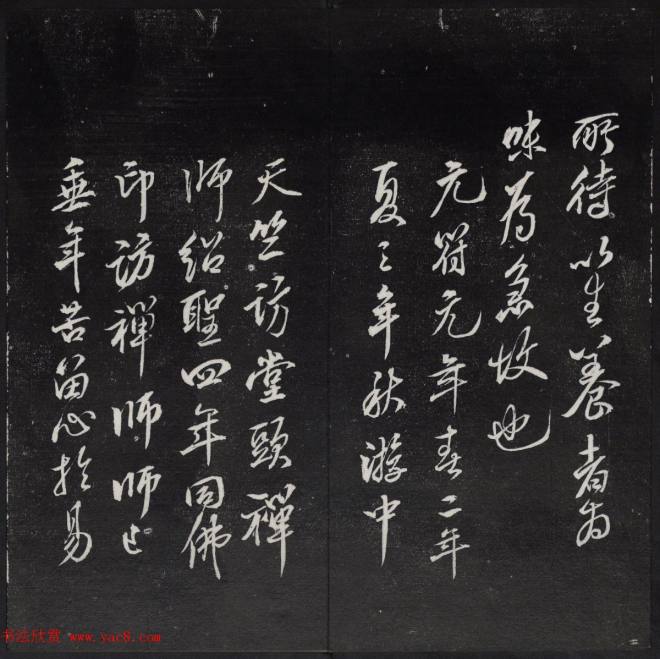 所待以生養者為
味為急故也
元符元年春二年
夏三年秋游中
天竺訪堂頭禪
師紹聖四年同佛
印訪禪師師已
垂年苦留心於易
书法欣赏 www.yac8.com